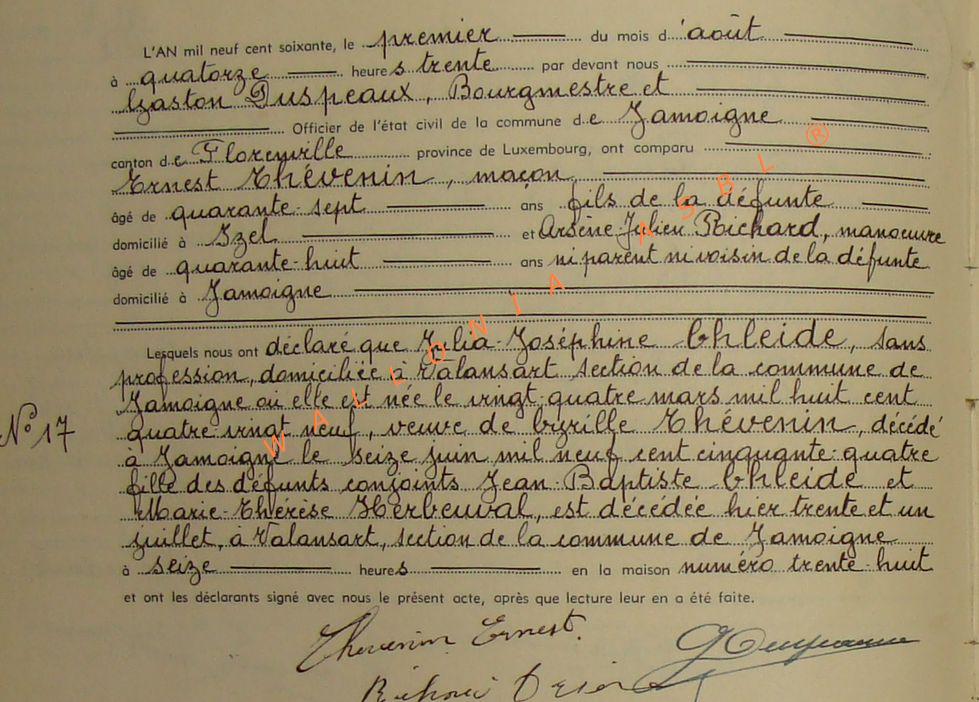 L'AN mil neuf cent soixante, le premier du mois d'août
à quatorze heures trente par devant nous
Gaston Duspeaux, Bourgmestre et
Officier de l'état civil de la commune de Jamoigne
canton de Florenville province de Luxembourg, ont comparu
Ernest Thévenin, maçon,
âgé de quarante-sept ans fils de la défunte
domicilié à Izel et Arsène Julien Richard, manoeuvre
âgé de quarante-huit ans ni parent ni voisin de la défunte
domicilié à Jamoigne
Lesquels nous ont déclaré que Julia-Joséphine Chleide, sans
profession, domiciliée à Valansart section de la commune de
Jamoigne où elle est née le vingt-quatre mars mil huit cent
N° 17
quatre-vingt neuf, veuve de Cyrille Thévenin, décédé
à Jamoigne le seize juin mil neuf cent cinquante-quatre
fille des défunts conjoints Jean-Baptiste Chleide et
Marie-Thérèse Herbeuval, est décédée hier trente et un
juillet, à Valansart, section de la commune de Jamoigne
à seize heures en la maison numéro trente-huit
et ont les déclarants signé avec nous le présent acte, après que lecture leur en a été faite.
Thevenin Ernest.
WALLONIA ASBL ®